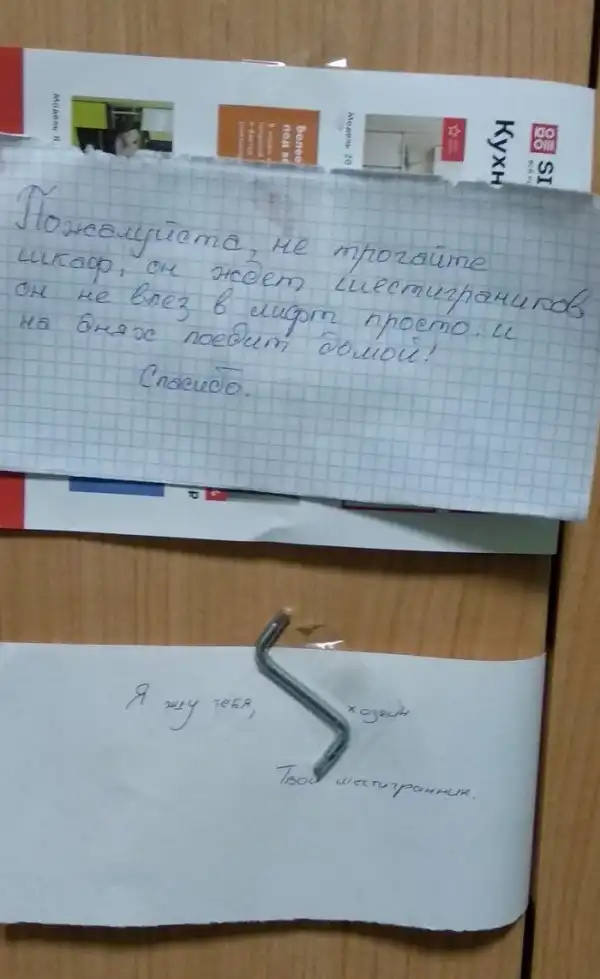 SI
Кухн
Модель 20
Более
под в
Пожалуйста, не трогайте
шкаф, он ждет шестиграников
он не влез в лифт просто. и
на днях поедит домой!
Спасибо.
Я жду тебя, хозяин
Твой шестигранник.